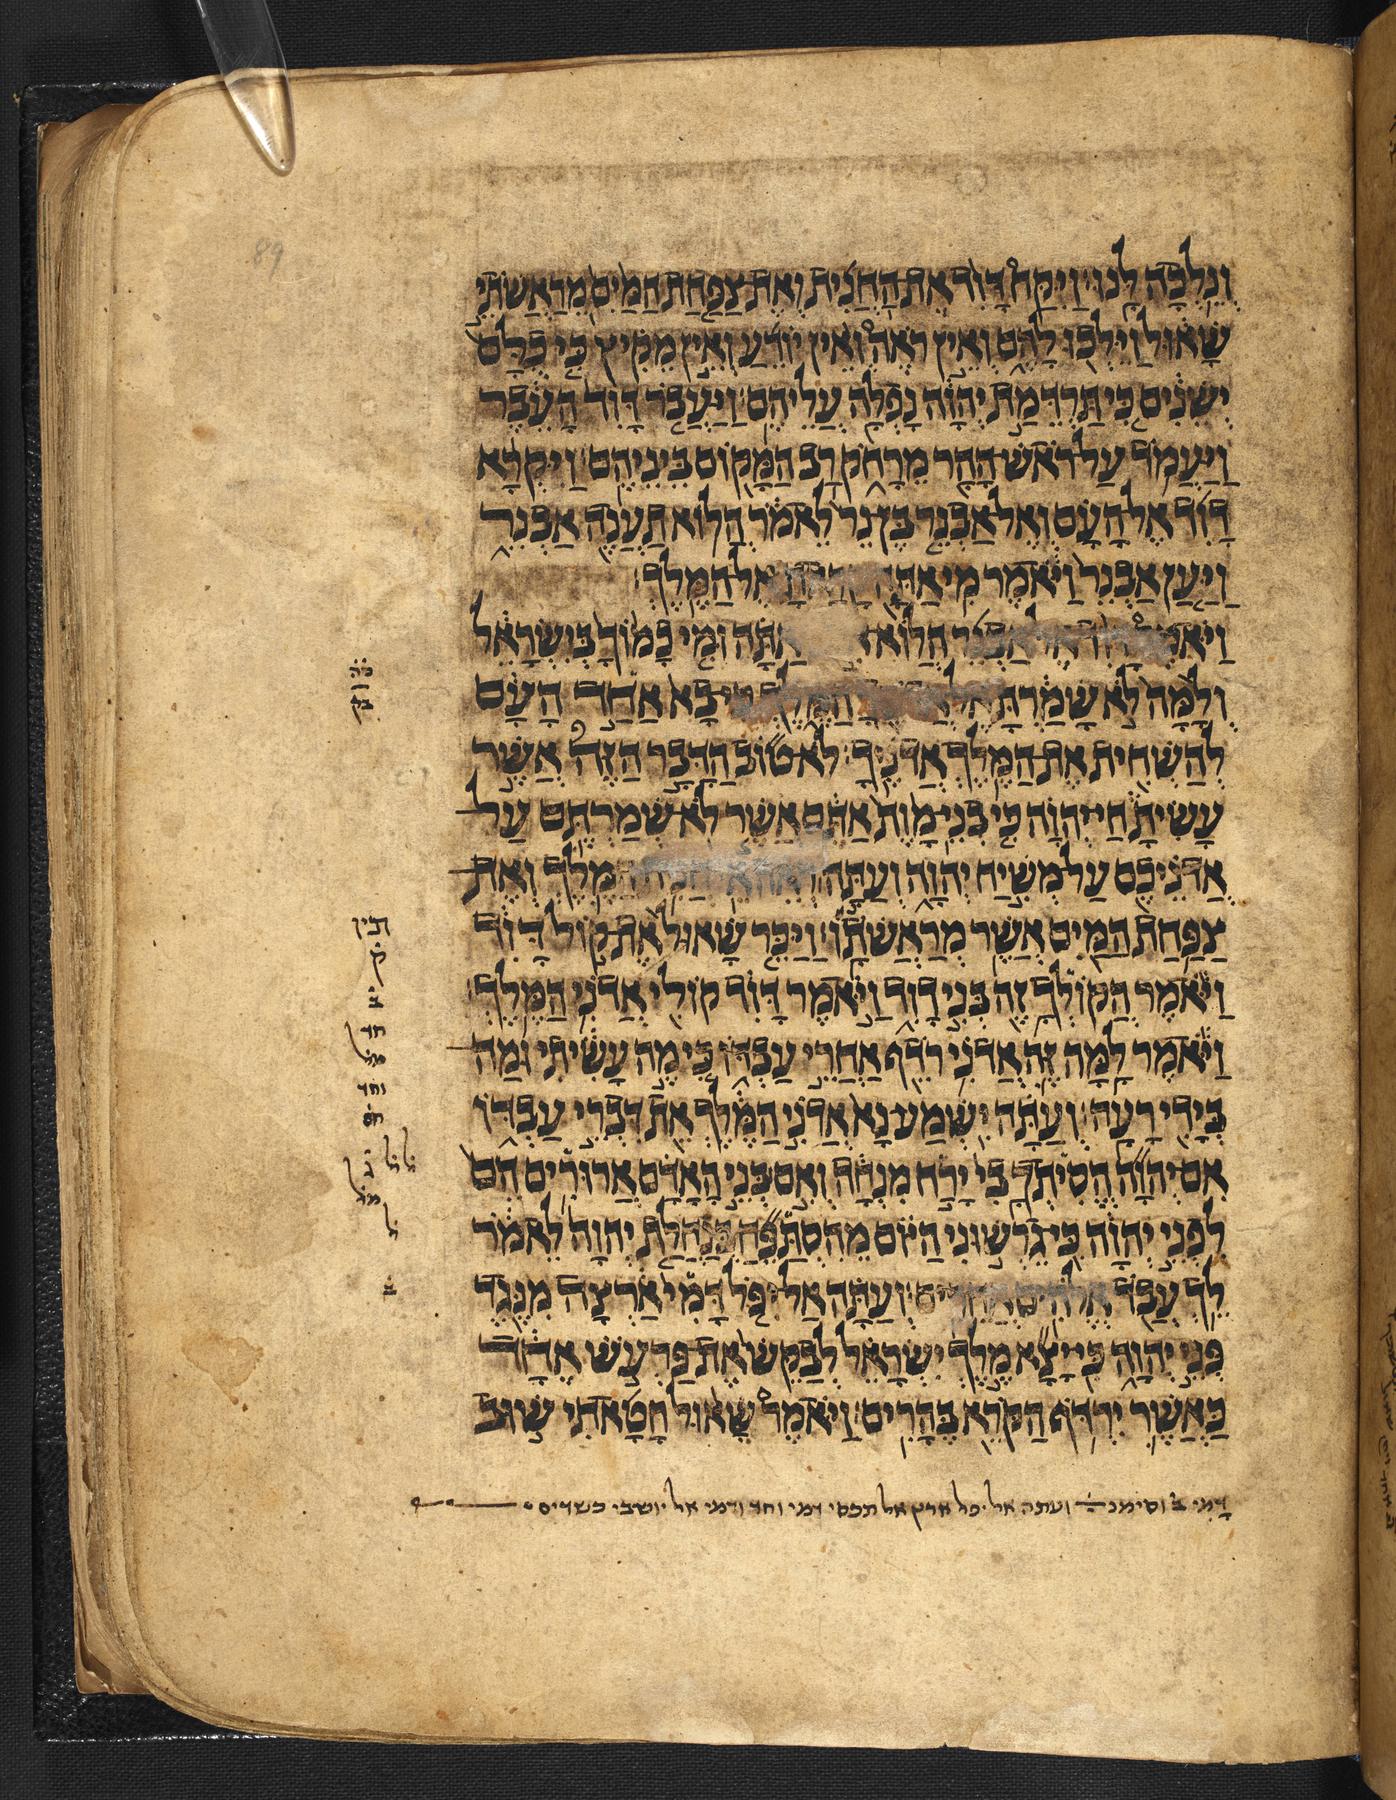 וְנֵלְכָה לָּנוּ׃ וַיִּקַּח דָּוִד אֶת הַחֲנִית וְאֶת צַפַּחַת הַמַּיִם מֵרַאֲשֹׁתֵי
שָׁאוּל וַיֵּלְכוּ לָהֶם וְאֵין רֹאֶה וְאֵין יוֹדֵעַ וְאֵין מֵקִיץ כִּי כֻלָּם
יְשֵׁנִים כִּי תַּרְדֵּמַת יְהוָה נָפְלָה עֲלֵיהֶם׃ וַיַּעֲבֹר דָּוִד הָעֵבֶר
וַיַּעֲמֹד עַל רֹאשׁ הָהָר מֵרָחֹק רַב הַמָּקוֹם בֵּינֵיהֶם׃ וַיִּקְרָא
דָוִד אֶל הָעָם וְאֶל אַבְנֵר בֶּן נֵר לֵאמֹר הֲלוֹא תַעֲנֶה אַבְנֵר
וַיַּעַן אַבְנֵר וַיֹּאמֶר מִי אַתָּה קָרָאתָ אֶל הַמֶּלֶךְ׃
וַיֹּאמֶר דָּוִד אֶל אַבְנֵר הֲלוֹא אַתָּה וּמִי כָמוֹךָ בְּיִשְׂרָאֵל
וְלָמָּה לֹא שָׁמַרְתָּ אֶל הַמֶּלֶךְ כִּי בָא אַחַד הָעָם
לְהַשְׁחִית אֶת הַמֶּלֶךְ אֲדֹנֶיךָ׃ לֹא טוֹב הַדָּבָר הַזֶּה אֲשֶׁר
עָשִׂיתָ חַי יְהוָה כִּי בְנֵי מָוֶת אַתֶּם אֲשֶׁר לֹא שְׁמַרְתֶּם עַל
אֲדֹנֵיכֶם עַל מְשִׁיחַ יְהוָה וְעַתָּה רְאֵה אֵי חֲנִית הַמֶּלֶךְ וְאֶת
צַפַּחַת הַמַּיִם אֲשֶׁר מְרַאֲשֹׁתָו׃ וַיַּכֵּר שָׁאוּל אֶת קוֹל דָּוִד
וַיֹּאמֶר הֲקוֹלְךָ זֶה בְּנִי דָוִד וַיֹּאמֶר דָּוִד קוֹלִי אֲדֹנִי הַמֶּלֶךְ׃
וַיֹּאמֶר לָמָּה זֶּה אֲדֹנִי רֹדֵף אַחֲרֵי עַבְדּוֹ כִּי מֶה עָשִׂיתִי וּמַה
בְּיָדִי רָעָה׃ וְעַתָּה יִשְׁמַע נָא אֲדֹנִי הַמֶּלֶךְ אֵת דִּבְרֵי עַבְדּוֹ
אִם יְהוָה הֱסִיתְךָ בִי יָרַח מִנְחָה וְאִם בְּנֵי הָאָדָם אֲרוּרִים הֵם
לִפְנֵי יְהוָה כִּי גֵרְשׁוּנִי הַיּוֹם מֵהִסְתַּפֵּחַ בְּנַחֲלַת יְהוָה לֵאמֹר
לֵךְ עֲבֹד אֱלֹהִים אֲחֵרִים׃ וְעַתָּה אַל יִפֹּל דָּמִי אַרְצָה מִנֶּגֶד
פְּנֵי יְהוָה כִּי יָצָא מֶלֶךְ יִשְׂרָאֵל לְבַקֵּשׁ אֶת פַּרְעֹשׁ אֶחָד
כַּאֲשֶׁר יִרְדֹּף הַקֹּרֵא בֶּהָרִים׃ וַיֹּאמֶר שָׁאוּל חָטָאתִי שׁוּב
תיו
ק
ב
חד
מל
וחד
חס
ל ל ג
מל
ל
ב
דָמִי ב וסימנ ועתה אל יפל ארץ אל תכסי דמי וחד ודמי אל יושבי כשדים
89